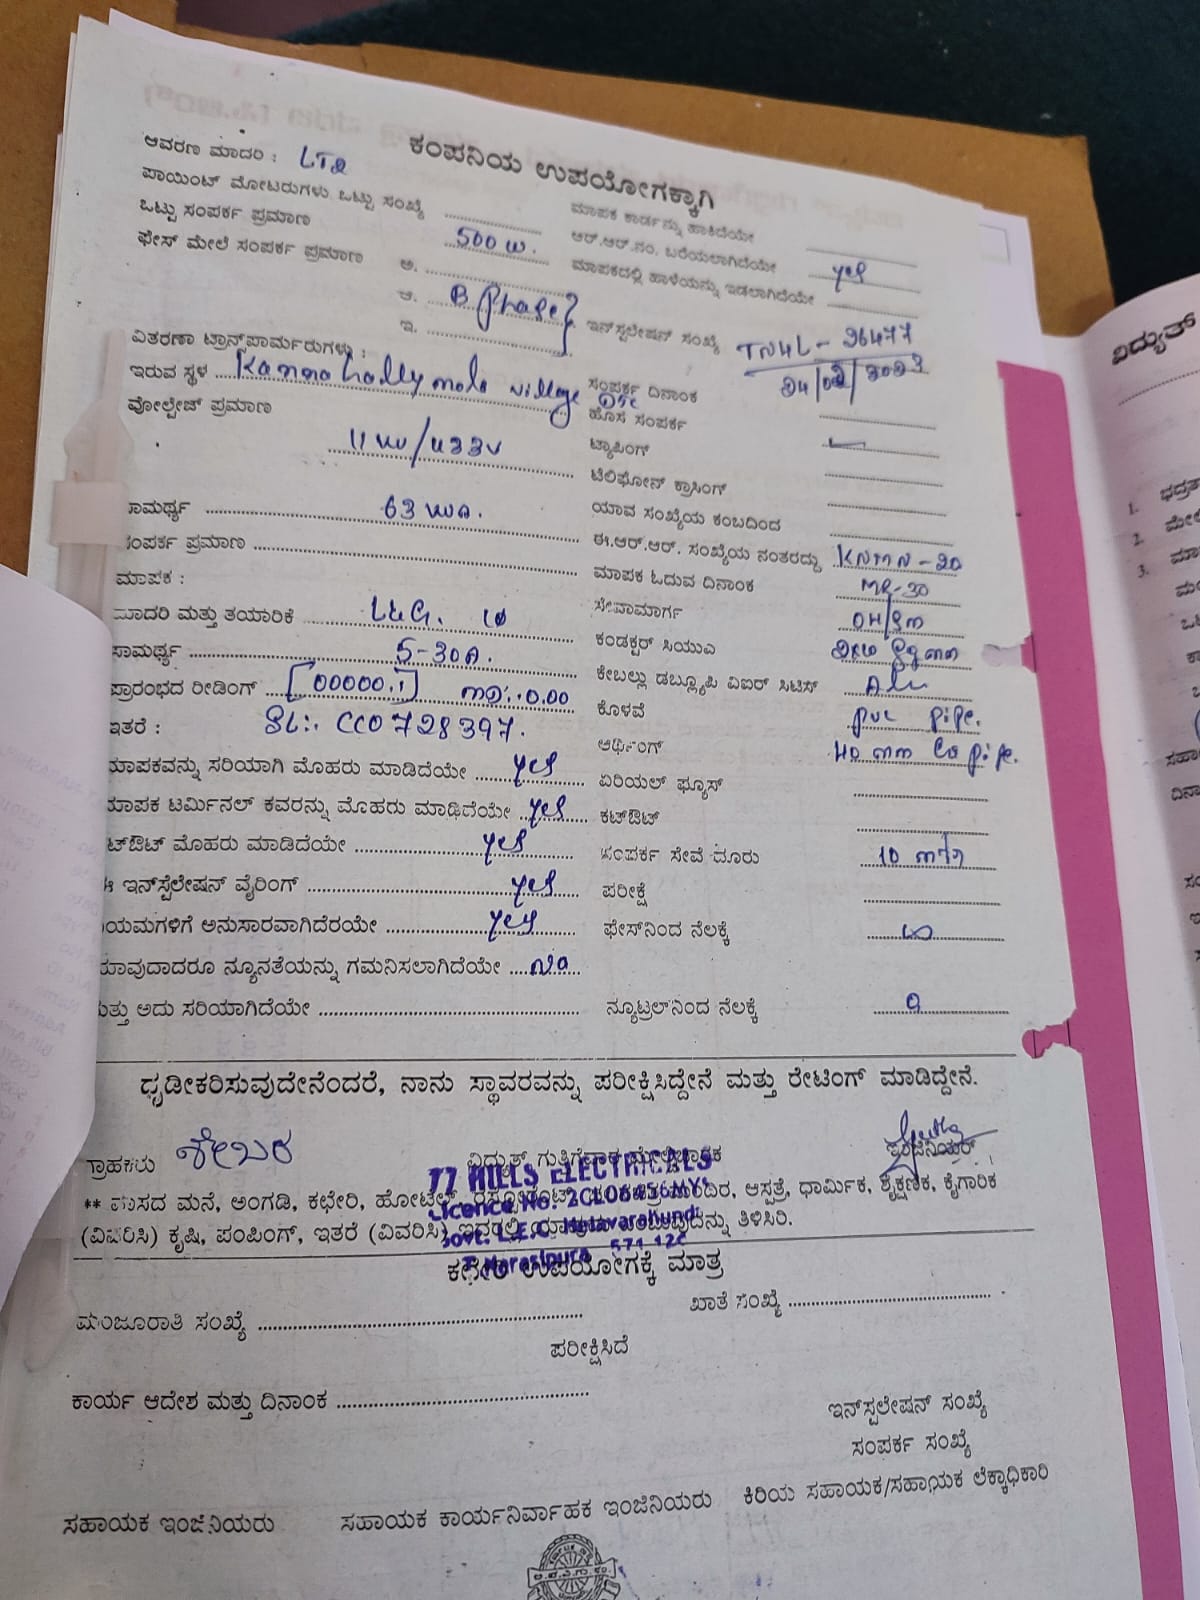 ಕಂಪನಿಯ ಉಪಯೋಗಕ್ಕಾಗಿ
ಆವರಣ ಮಾದರಿ : LT2
ಪಾಯಿಂಟ್ ಮೋಟರುಗಳು ಒಟ್ಟು ಸಂಖ್ಯೆ
ಒಟ್ಟು ಸಂಪರ್ಕ ಪ್ರಮಾಣ 500 W.
ಫೇಸ್ ಮೇಲೆ ಸಂಪರ್ಕ ಪ್ರಮಾಣ ಅ.
ಆ. B Phase
ಇ.
ವಿತರಣಾ ಟ್ರಾನ್ಸ್‌ಫಾರ್ಮರುಗಳು :
ಇರುವ ಸ್ಥಳ village
ವೋಲ್ಟೇಜ್ ಪ್ರಮಾಣ
11 KV/433V
ಸಾಮರ್ಥ್ಯ 63 KVA.
ಸಂಪರ್ಕ ಪ್ರಮಾಣ
ಮಾಪಕ :
ಮಾದರಿ ಮತ್ತು ತಯಾರಿಕೆ L&G.
ಸಾಮರ್ಥ್ಯ 5-30A.
ಪ್ರಾರಂಭದ ರೀಡಿಂಗ್ [00000.1] MD:-0.00
ಇತರೆ : SL:- CC0728397.
ಮಾಪಕವನ್ನು ಸರಿಯಾಗಿ ಮೊಹರು ಮಾಡಿದೆಯೇ yes
ಮಾಪಕ ಟರ್ಮಿನಲ್ ಕವರನ್ನು ಮೊಹರು ಮಾಡಿದೆಯೇ yes
ಟ್‌ಔಟ್ ಮೊಹರು ಮಾಡಿದೆಯೇ yes
ಈ ಇನ್‌ಸ್ಟೆಲೇಷನ್ ವೈರಿಂಗ್ yes
ಯಮಗಳಿಗೆ ಅನುಸಾರವಾಗಿದೆರಯೇ yes
ಯಾವುದಾದರೂ ನ್ಯೂನತೆಯನ್ನು ಗಮನಿಸಲಾಗಿದೆಯೇ No
ಮತ್ತು ಅದು ಸರಿಯಾಗಿದೆಯೇ
ಮಾಪಕ ಕಾರ್ಡನ್ನು ಹಾಕಿದೆಯೇ
ಆರ್.ಆರ್.ನಂ. ಬರೆಯಲಾಗಿದೆಯೇ yes
ಮಾಪಕದಲ್ಲಿ ಹಾಳೆಯನ್ನು ಇಡಲಾಗಿದೆಯೇ
ಇನ್‌ಸ್ಟಲೇಷನ್ ಸಂಖ್ಯೆ TN4L - 26477
ಸಂಪರ್ಕ ದಿನಾಂಕ 24/02/2023
ಹೊಸ ಸಂಪರ್ಕ
ಟ್ಯಾಪಿಂಗ್
ಟೆಲಿಫೋನ್ ಕ್ರಾಸಿಂಗ್
ಯಾವ ಸಂಖ್ಯೆಯ ಕಂಬದಿಂದ
ಈ.ಆರ್.ಆರ್. ಸಂಖ್ಯೆಯ ನಂತರದ್ದು KNMN-20
ಮಾಪಕ ಓದುವ ದಿನಾಂಕ MR-30
ಸೇವಾಮಾರ್ಗ OH/SM
ಕಂಡಕ್ಟರ್ ಸಿಯುಎ
ಕೇಬಲ್ಲು ಡಬ್ಲ್ಯೂಪಿ ವಿಐಆರ್ ಸಿಟಿಸ್ Alu
ಕೊಳವೆ PVC pipe.
ಅರ್ಥಿಂಗ್ 40 mm pipe.
ಏರಿಯಲ್ ಫ್ಯೂಸ್
ಕಟ್‌ಔಟ್
ಸಂಪರ್ಕ ಸೇವೆ ದೂರು 10 mtr
ಪರೀಕ್ಷೆ
ಫೇಸ್‌ನಿಂದ ನೆಲಕ್ಕೆ ∞
ನ್ಯೂಟ್ರಲ್‌ನಿಂದ ನೆಲಕ್ಕೆ 0
ಧೃಡೀಕರಿಸುವುದೇನೆಂದರೆ, ನಾನು ಸ್ಥಾವರವನ್ನು ಪರೀಕ್ಷಿಸಿದ್ದೇನೆ ಮತ್ತು ರೇಟಿಂಗ್ ಮಾಡಿದ್ದೇನೆ.
ಗ್ರಾಹಕರು ಶೇಖರ ವಿದ್ಯುತ್ ಗುತ್ತಿಗೆದಾರ ಮೇಲ್ವಿಚಾರಕ ಇಂಜಿನಿಯರ್
77 HILLS ELECTRICALS
Licence No. 2CL08456MYS
Govt. L.E.C.
T. Narasipura 571 120
** ವಾಸದ ಮನೆ, ಅಂಗಡಿ, ಕಛೇರಿ, ಹೋಟೆಲ್, ಆಸ್ಪತ್ರೆ, ಧಾರ್ಮಿಕ, ಶೈಕ್ಷಣಿಕ, ಕೈಗಾರಿಕ
(ವಿವರಿಸಿ) ಕೃಷಿ, ಪಂಪಿಂಗ್, ಇತರೆ (ವಿವರಿಸಿ) ತಿಳಿಸಿರಿ.
ಕಛೇರಿ ಉಪಯೋಗಕ್ಕೆ ಮಾತ್ರ
ಮಂಜೂರಾತಿ ಸಂಖ್ಯೆ ಖಾತೆ ಸಂಖ್ಯೆ
ಪರೀಕ್ಷಿಸಿದೆ
ಕಾರ್ಯ ಆದೇಶ ಮತ್ತು ದಿನಾಂಕ
ಇನ್‌ಸ್ಟಲೇಷನ್ ಸಂಖ್ಯೆ
ಸಂಪರ್ಕ ಸಂಖ್ಯೆ
ಸಹಾಯಕ ಇಂಜಿನಿಯರು ಸಹಾಯಕ ಕಾರ್ಯನಿರ್ವಾಹಕ ಇಂಜಿನಿಯರು ಕಿರಿಯ ಸಹಾಯಕ/ಸಹಾಯಕ ಲೆಕ್ಕಾಧಿಕಾರಿ
ವಿದ್ಯುತ್
1.
2.
3.